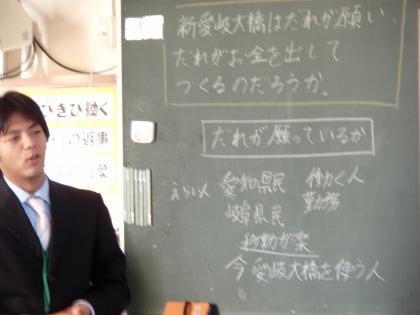 新愛岐大橋はだれが願い、
だれがお金を出して
つくるのだろうか。
だれが願っているか
えらい人 愛知県民 働く人
岐阜県民 勤務
移動が楽
今 愛岐大橋を使う人
くひきひ働